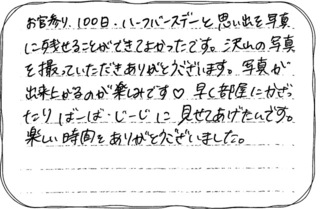 お宮参り、100日・ハーフバースデーと思い出を写真
に残せることができてよかったです。沢山の写真
を撮っていただきありがとうございます。写真が
出来上がるのが楽しみです♡ 早く部屋にかざっ
たりばーば・じーじに見せてあげたいです。
楽しい時間をありがとうございました。